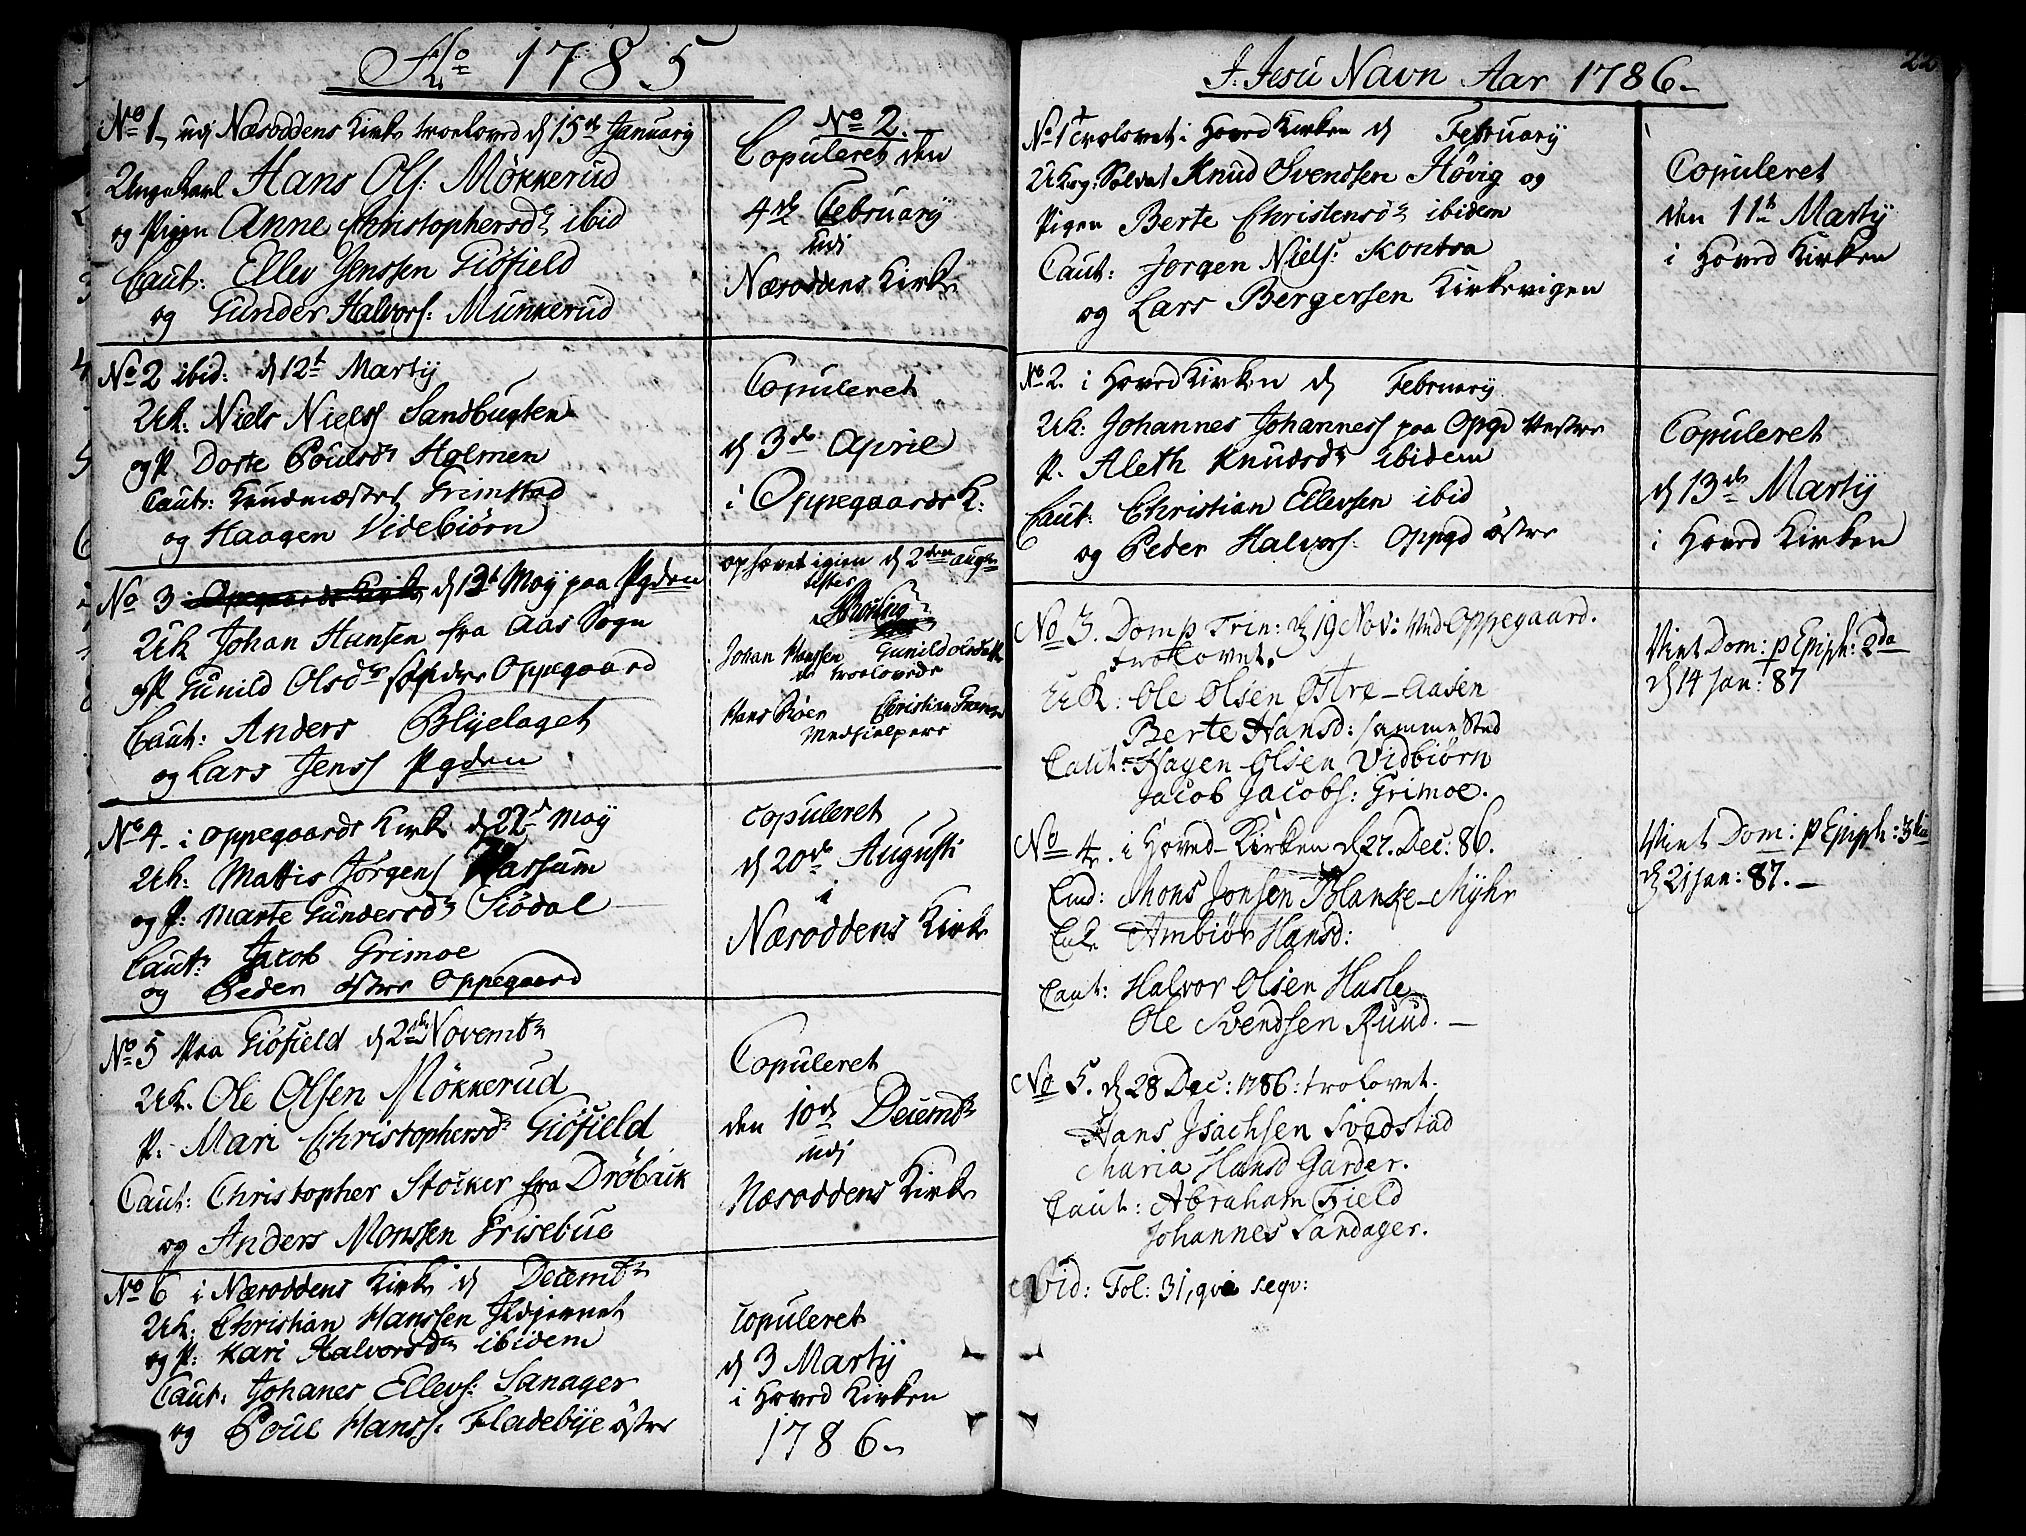 Ao 1785
No 1, udj Næsoddens Kirke troelovd d 15de January
Unge Karl Hans Ols: Mökkerud
og Pigen Anne Christophersdr ibid
Caut: Ellev Jenssen Giöfield
og Gunder Halvors: Munkerud
No 2.
Copuleret den
4de February
udj
Næsoddens Kirke
No 2 ibid: d 12t Martij
Uk: Niels Niels Sandbugten
og P. Dorte Poulsdr Holmen
Caut: Knud Grimstad
og Haagen Videbiørn
Copuleret
d 3die Aprile
i Oppegaards K:
No 3 d 13t Maij paa Pgden
Uk Johan Hansen fra Aas Sogn
og P Gunild Olsdr Oppegaard
Caut: Anders Blylaget
og Lars Jenss Pgden
ophævet igien d 2den Augu
testes
Johan Hanssen Gunild Olsdr
de troelovede
Hans Christian
Medhielpere
No 4. i Oppegaards Kirke d 22d Maij
Uk: Mattis Jörgens Hassum
og P: Marte Gundersdr Siödal
Caut: Jacob Grimoe
og Peder östre Oppegaard
Copuleret
d 20de Augusti
i
Næsoddens Kirke
No 5 paa Giöfield d 2den Novembr
Uk. Ole Olsen Mökkerud
P. Mari Christophersdr Giöfield
Caut: Christopher Stocker fra Dröbak
og Anders Monssen Grisebue
Copuleret
den 10de Decembr
udj
Næsoddens Kirke
No 6 i Næsoddens Kirke d Decembr
Uk: Christian Hanssen Ildjernet
og P: Kari Halvorsdr ibidem
Caut: Johanes Ellevs: Sanager
og Poul Hanss: Fladebye östre
Copuleret
d 3 Martij
i Hoved Kirken
1786
J. Jesu Navn Aar 1786
22
No 1 Trolovet i Hoved Kirken d February
Uk og Soldat Knud Svendsen Høvig og
Pigen Berte Christensdr ibidem
Caut: Jorgen Niels: Kontra
og Lars Bergersen Kirkevigen
Copuleret
den 11te Martij
i Hoved Kirken
No 2. i Hoved Kirken d February
Uk: Johannes Johanness paa Opgd Vestre
P. Aleth Knudsdr ibidem
Caut: Christian Ellevsen ibid
og Peder Halvors: Oppgd östre
Copuleret
d 13de Martij
i Hoved Kirken
No 3. Dom p Trin: d 19 Nov: ved Oppegaard.
trolovet.
UK: Ole Olsen Østre-Aasen
Berte Hansd: samme Sted
Caut: Hagen Olsen Vidbiörn
Jacob Jacobs: Grimoe.
Viet Dom: p Epiph: 2da
d 14 Jan: 87
No 4. i Hoved-Kirken d 27. Dec: 86.
Emd: Mons Jonsen Blanke-Myhr
Enke Ambiör Hansd:
Caut: Halvor Olsen Hasle
Ole Svendsen Ruud.
Viet Dom: p Epiph: 3tia
d 21 Jan: 87.
No 5. d 28 Dec: 1786: trolovet.
Hans Isachsen Svedstad
Maria Hansd Garder.
Caut: Abraham Field
Johannes Sandager.
Vid: Fol: 31, qvi seqv: